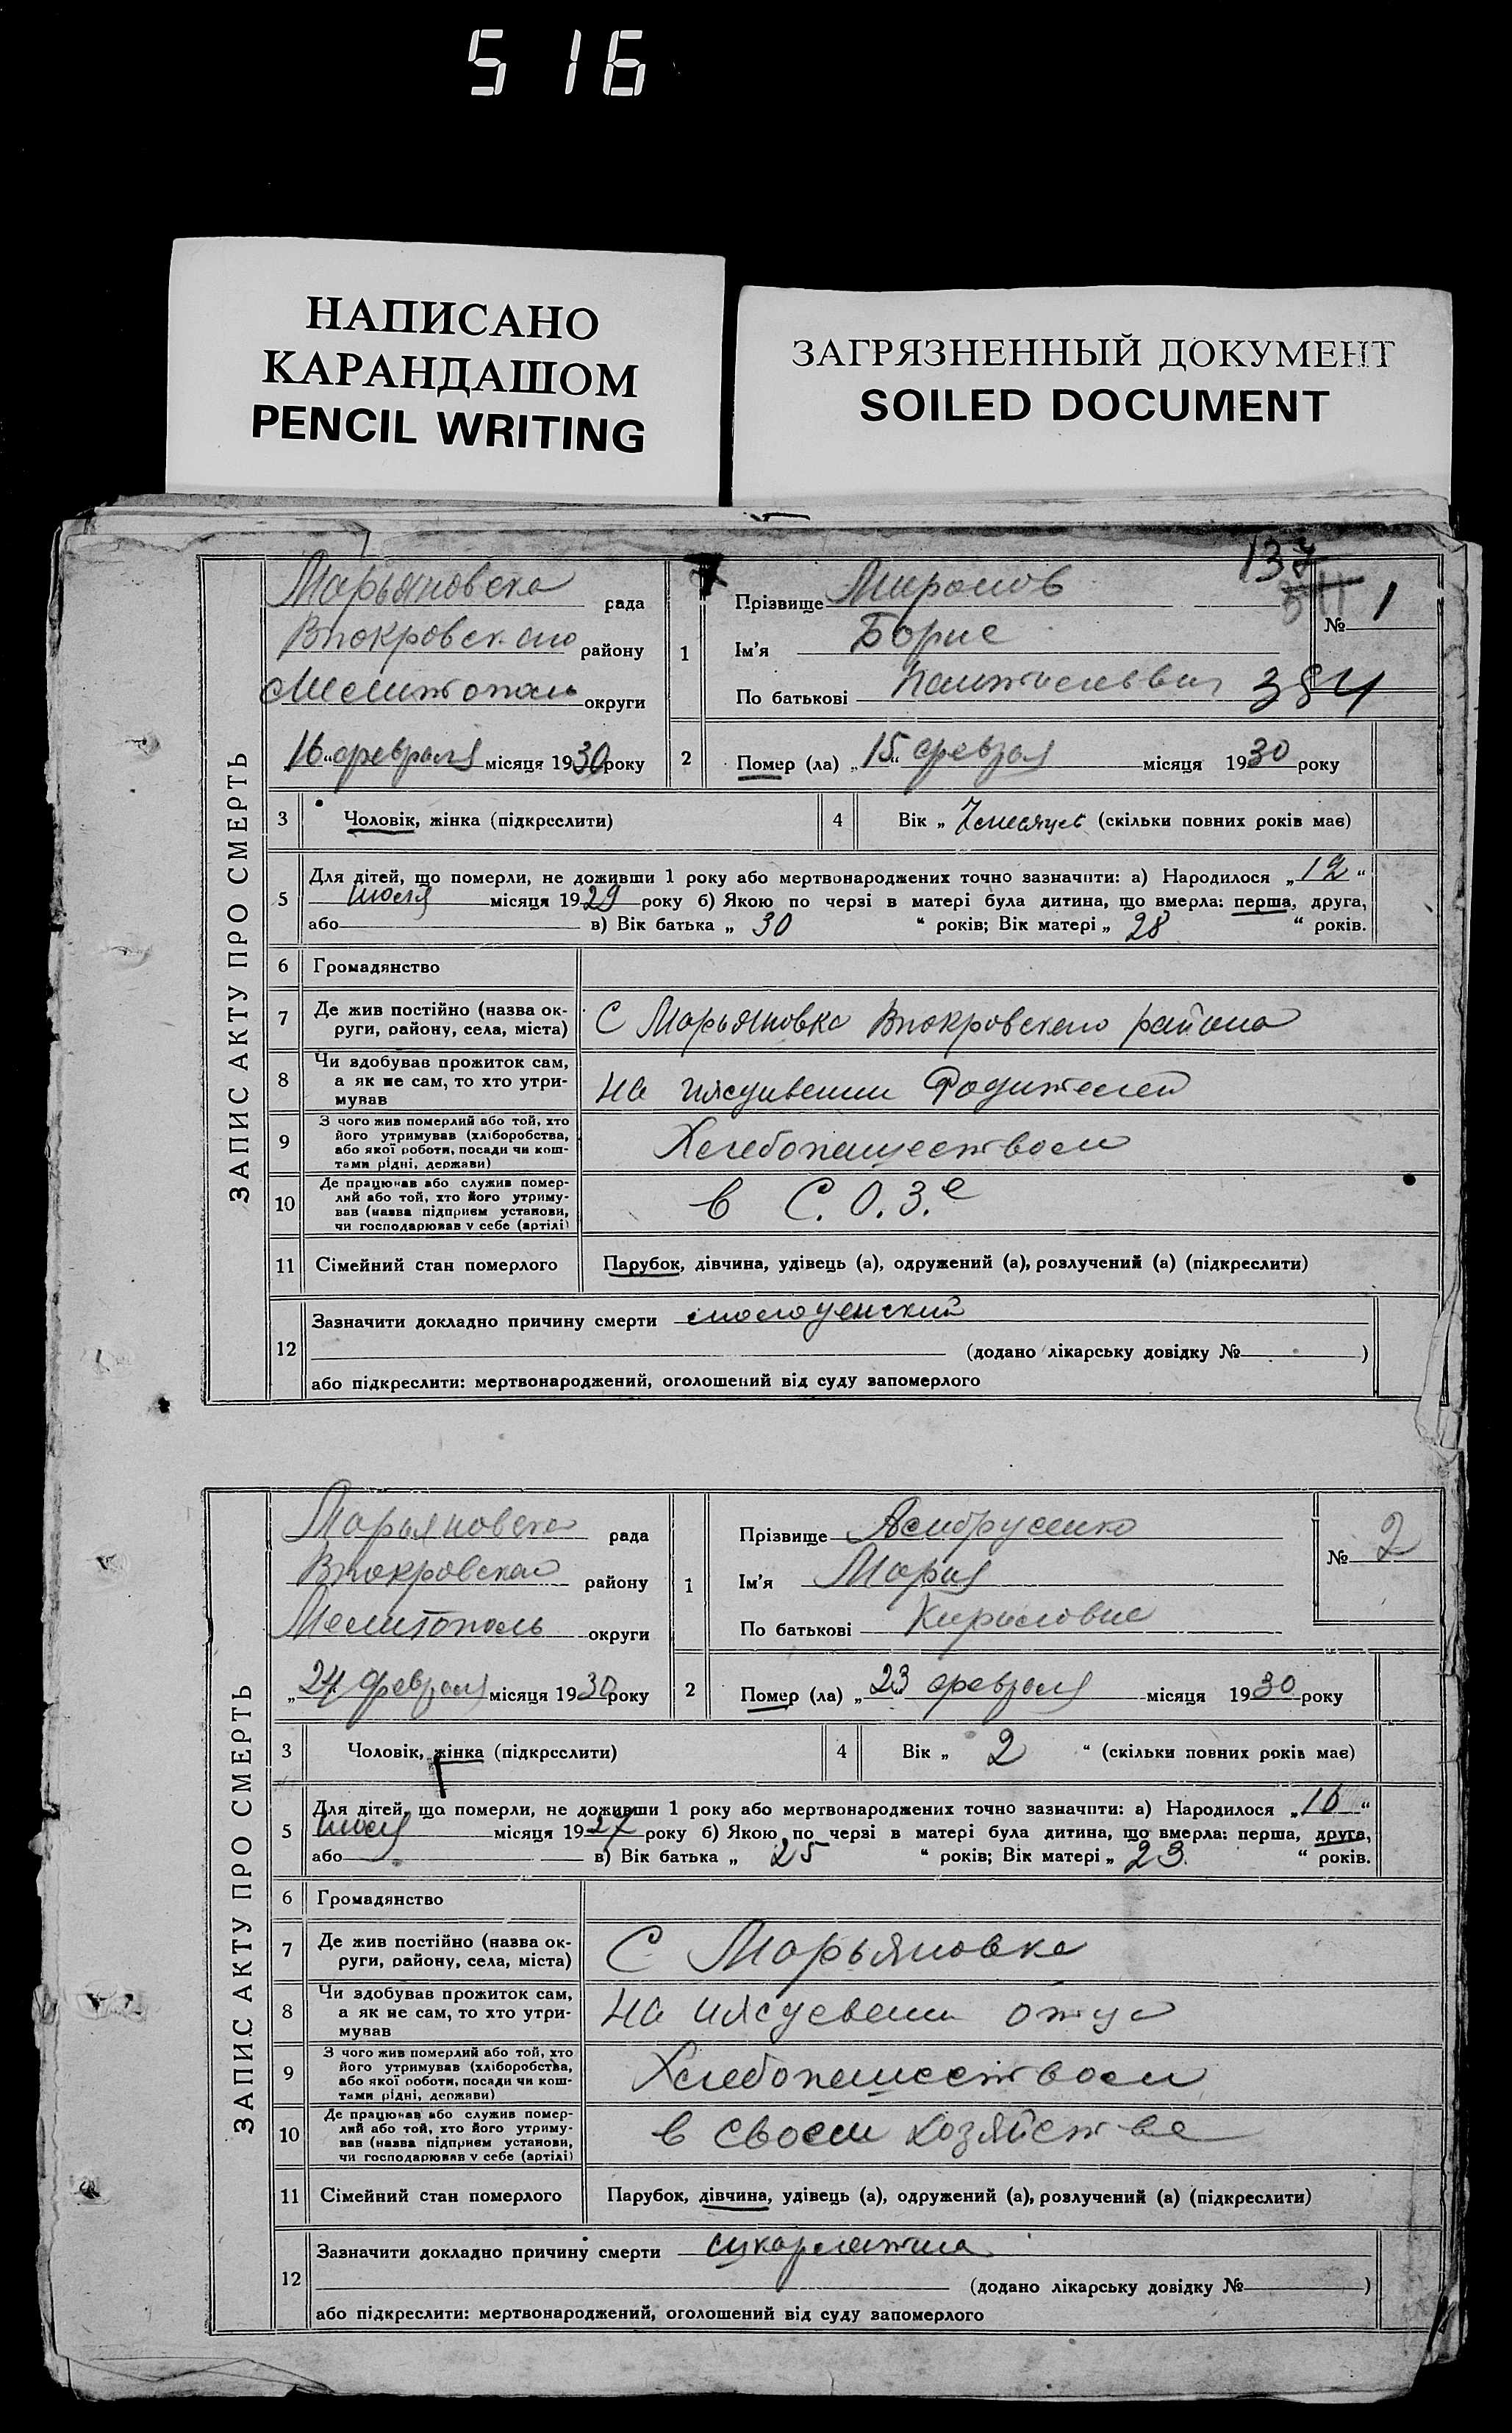 516
НАПИСАНО
КАРАНДАШОМ
PENCIL WRITING
ЗАГРЯЗНЕННЫЙ ДОКУМЕНТ
SOILED DOCUMENT
137
ЗАПИС АКТУ ПРО СМЕРТЬ
Марьяновска рада
Впокровского району
Мелитополь округи
„16“ февраля місяця 1930 року
1
Прізвище Миронов
Ім'я Борис
По батькові
№ 1
384
2 Помер (ла) „15“ феврал місяця 1930 року
3 Чоловік, жінка (підкреслити)
4 Вік „ 7 месяцев (скільки повних років має)
5 Для дітей, що померли, не доживши 1 року або мертвонароджених точно зазначити: а) Народилося „12“
июля місяця 1929 року б) Якою по черзі в матері була дитина, що вмерла: перша, друга,
або в) Вік батька „ 30 “ років; Вік матері „ 28 “ років.
6 Громадянство
7 Де жив постійно (назва ок-
руги, району, села, міста) С Марьяновка Впокровского района
8 Чи здобував прожиток сам,
а як не сам, то хто утри-
мував на иждивении Родителей
9 З чого жив померлий або той, хто
його утримував (хліборобства,
або якої роботи, посади чи кош-
тами рідні, держави) Хлебопашеством
10 Де працював або служив помер-
лий або той, хто його утриму-
вав (назва підприєм установи,
чи господарював у себе (артілі) в С.О.З.е
11 Сімейний стан померлого Парубок, дівчина, удівець (а), одружений (а), розлучений (а) (підкреслити)
12 Зазначити докладно причину смерти
(додано лікарську довідку № )
або підкреслити: мертвонароджений, оголошений від суду запомерлого
ЗАПИС АКТУ ПРО СМЕРТЬ
Марьяновска рада
Впокровская району
Мелитополь округи
„24 февраля місяця 1930 року
1
Прізвище
Ім'я Мария
По батькові Кириловна
№ 2
2 Помер (ла) „23 февраля місяця 1930 року
3 Чоловік, жінка (підкреслити)
4 Вік „ 2 “ (скільки повних років має)
5 Для дітей, що померли, не доживши 1 року або мертвонароджених точно зазначити: а) Народилося „16“
июля місяця 1927 року б) Якою по черзі в матері була дитина, що вмерла: перша, друга,
або в) Вік батька „ 25 “ років; Вік матері „ 23 “ років.
6 Громадянство
7 Де жив постійно (назва ок-
руги, району, села, міста) С Марьяновка
8 Чи здобував прожиток сам,
а як не сам, то хто утри-
мував на иждевени отца
9 З чого жив померлий або той, хто
його утримував (хліборобства,
або якої роботи, посади чи кош-
тами рідні, держави) Хлебопашеством
10 Де працював або служив помер-
лий або той, хто його утриму-
вав (назва підприєм установи,
чи господарював у себе (артілі) в своем хозяйстве
11 Сімейний стан померлого Парубок, дівчина, удівець (а), одружений (а), розлучений (а) (підкреслити)
12 Зазначити докладно причину смерти скарлатина
(додано лікарську довідку № )
або підкреслити: мертвонароджений, оголошений від суду запомерлого